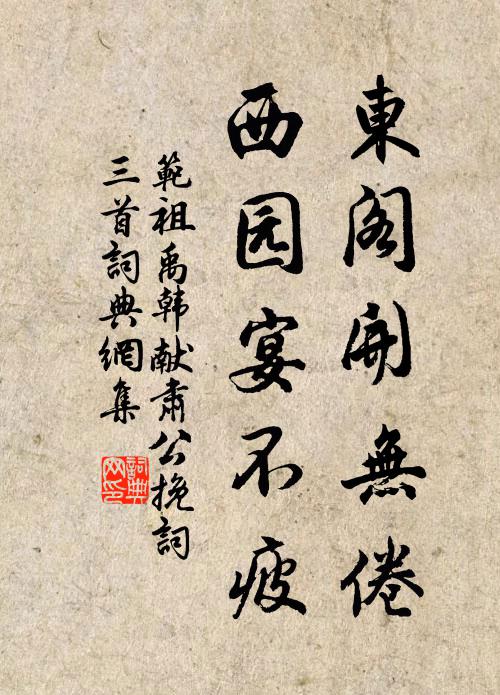 東阁開無倦
西园宴不疲
範祖禹韩献肃公挽詞
三首詞典網集
詞典
网印